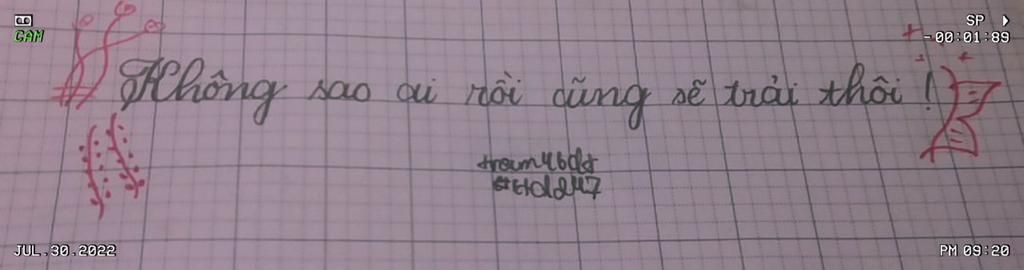 SP
CAM
-00:01:89
Không sao ai rồi cũng sẽ trải thôi !
JUL.30.2022
PM 09:20